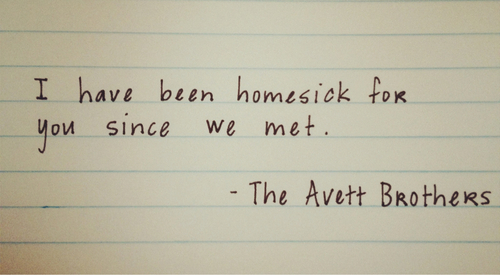 I have been homesick for
you since we met.
- The Avett Brothers